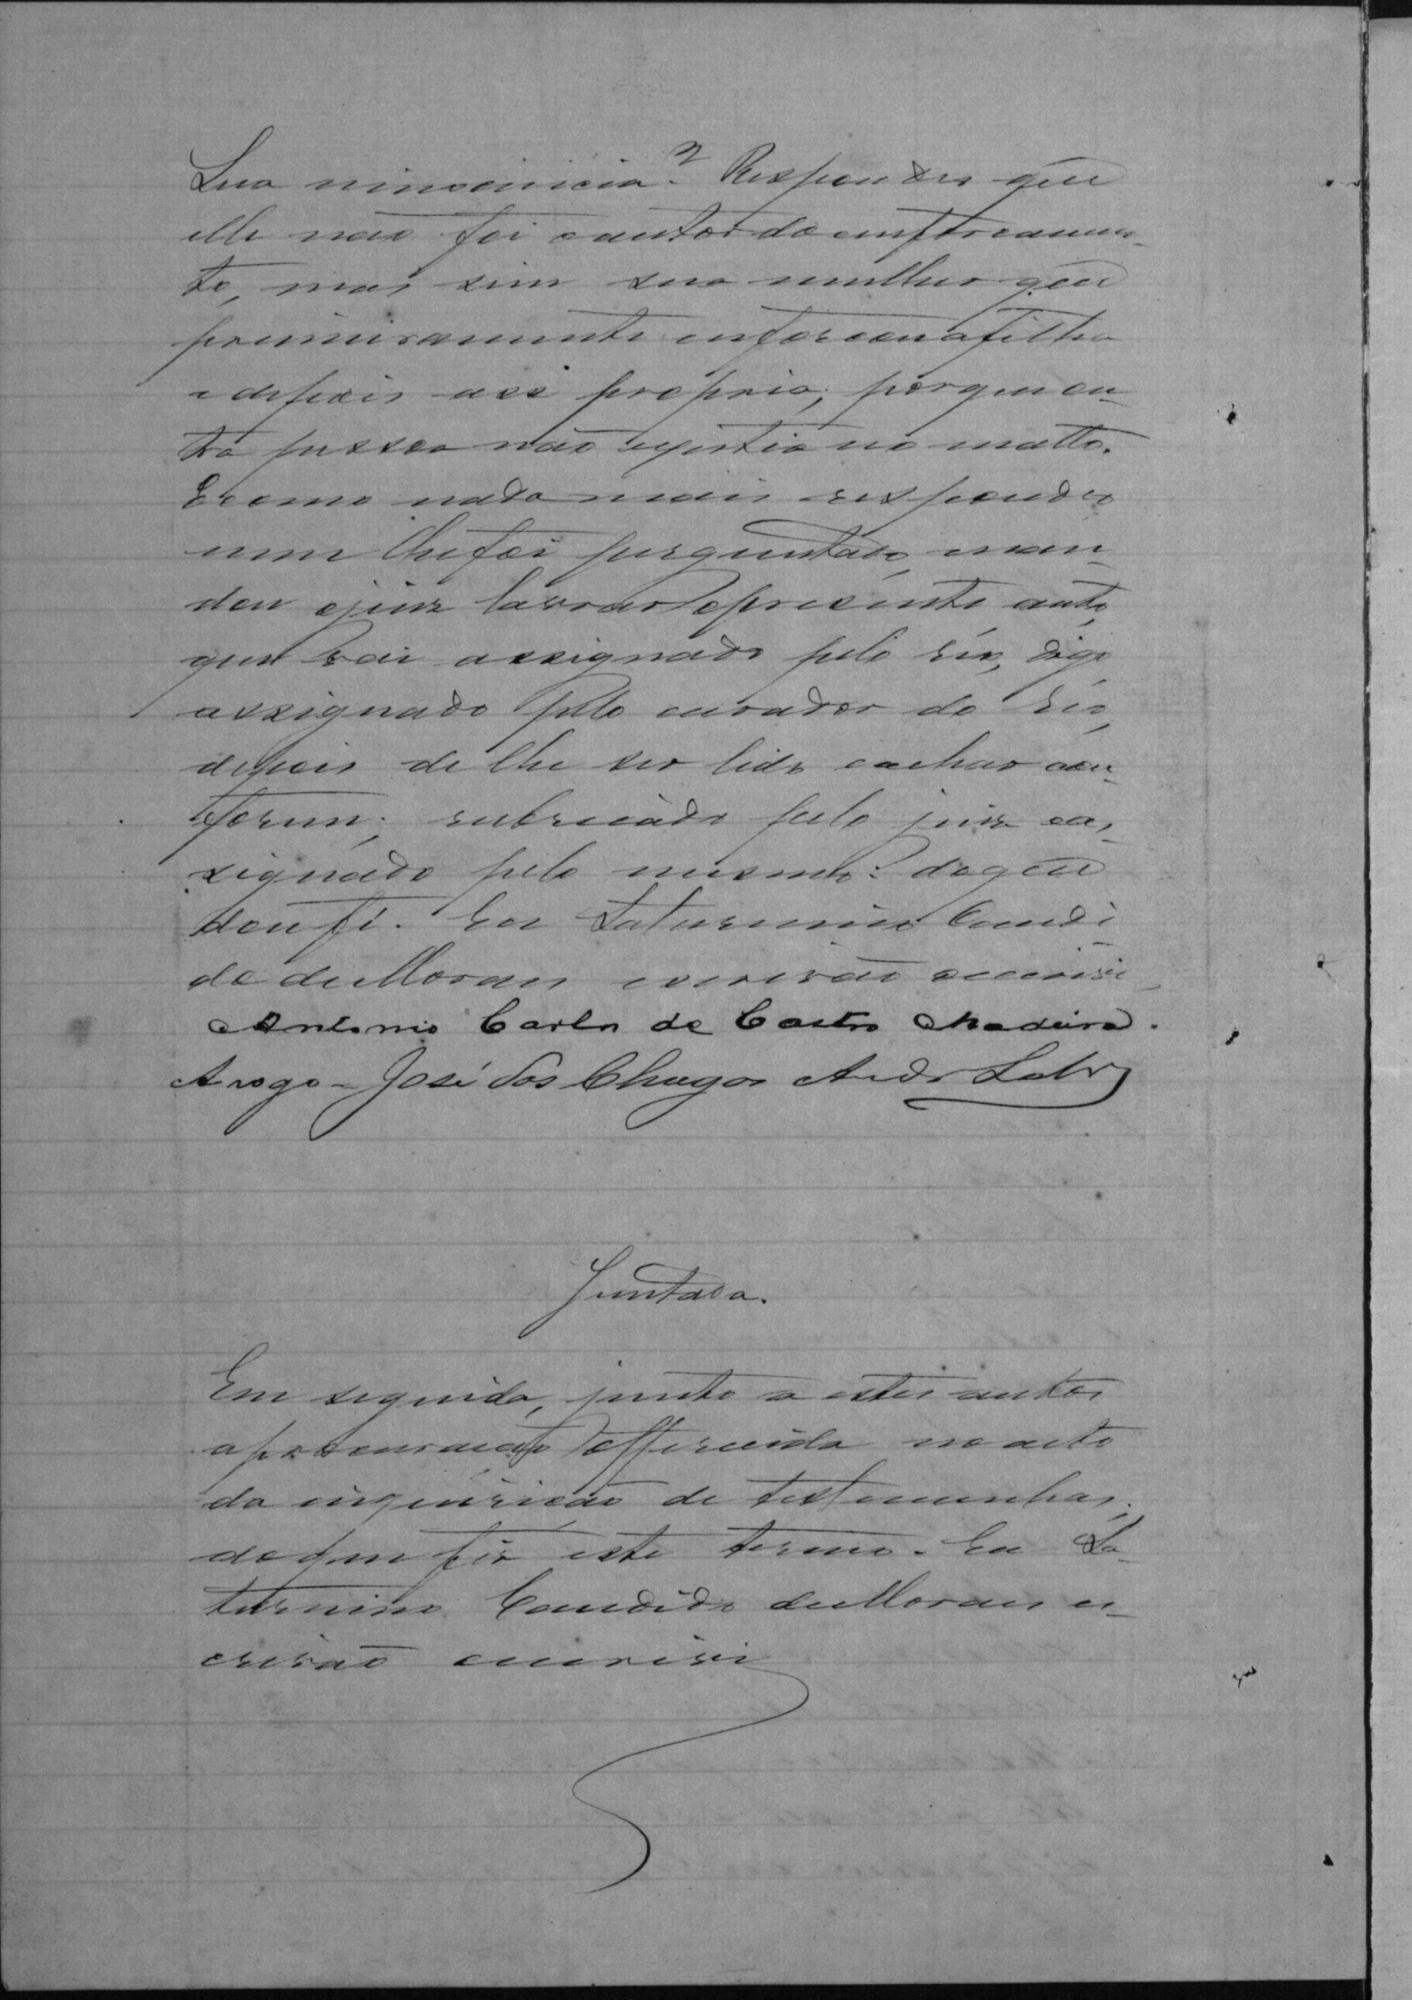 Sua innocencia? Respondeu que
elle não foi o autor do enforcamen-
to, mas sim sua mulher que
primeiramente enforcou a filha
e depois a si propria; porque ou-
tra pessoa não existia no matto.
E como nada mais respondeu
nem lhe foi perguntado, man-
dou o juiz lavrar o presente auto,
que vai assignado pelo réo, digo,
assignado pelo curador do réo,
depois de lhe ser lido e achar con-
forme; rubricado pelo juiz e as-
signado pelo mesmo: do que
dou fé. Eu Saturnino Candi
do de Moraes escrivão escrevi
Antonio Carlos de Castro Madeira.
A rogo - José das Chagas Andr
Juntada.
Em seguida, junto a estes autos
a procuração offerecida no acto
da inquirição de testemunhas;
do que fiz este termo. Eu Sa-
turnino Candido de Moraes es-
crivão escrevi